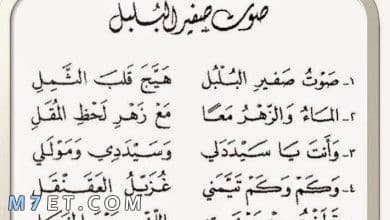 صوت صفير البلبل
١- صَوْتُ صَفِيرِ البُلْبُلِ هَيَّجَ قَلبَ الثَّمِلِ
٢- المَاءُ وَالزَّهْرُ مَعًا مَعَ زَهْرِ لَحْظِ المُقَلِ
٣- وَأَنتَ يَا سَيِّدَدَلِي وَسَيِّدِي وَمَوْلَى لِي
٤- وَكَمْ وَكَمْ تَيَّمَنِي غُزَيِّلٌ العَقَنْقَلِ
M7ET.COM